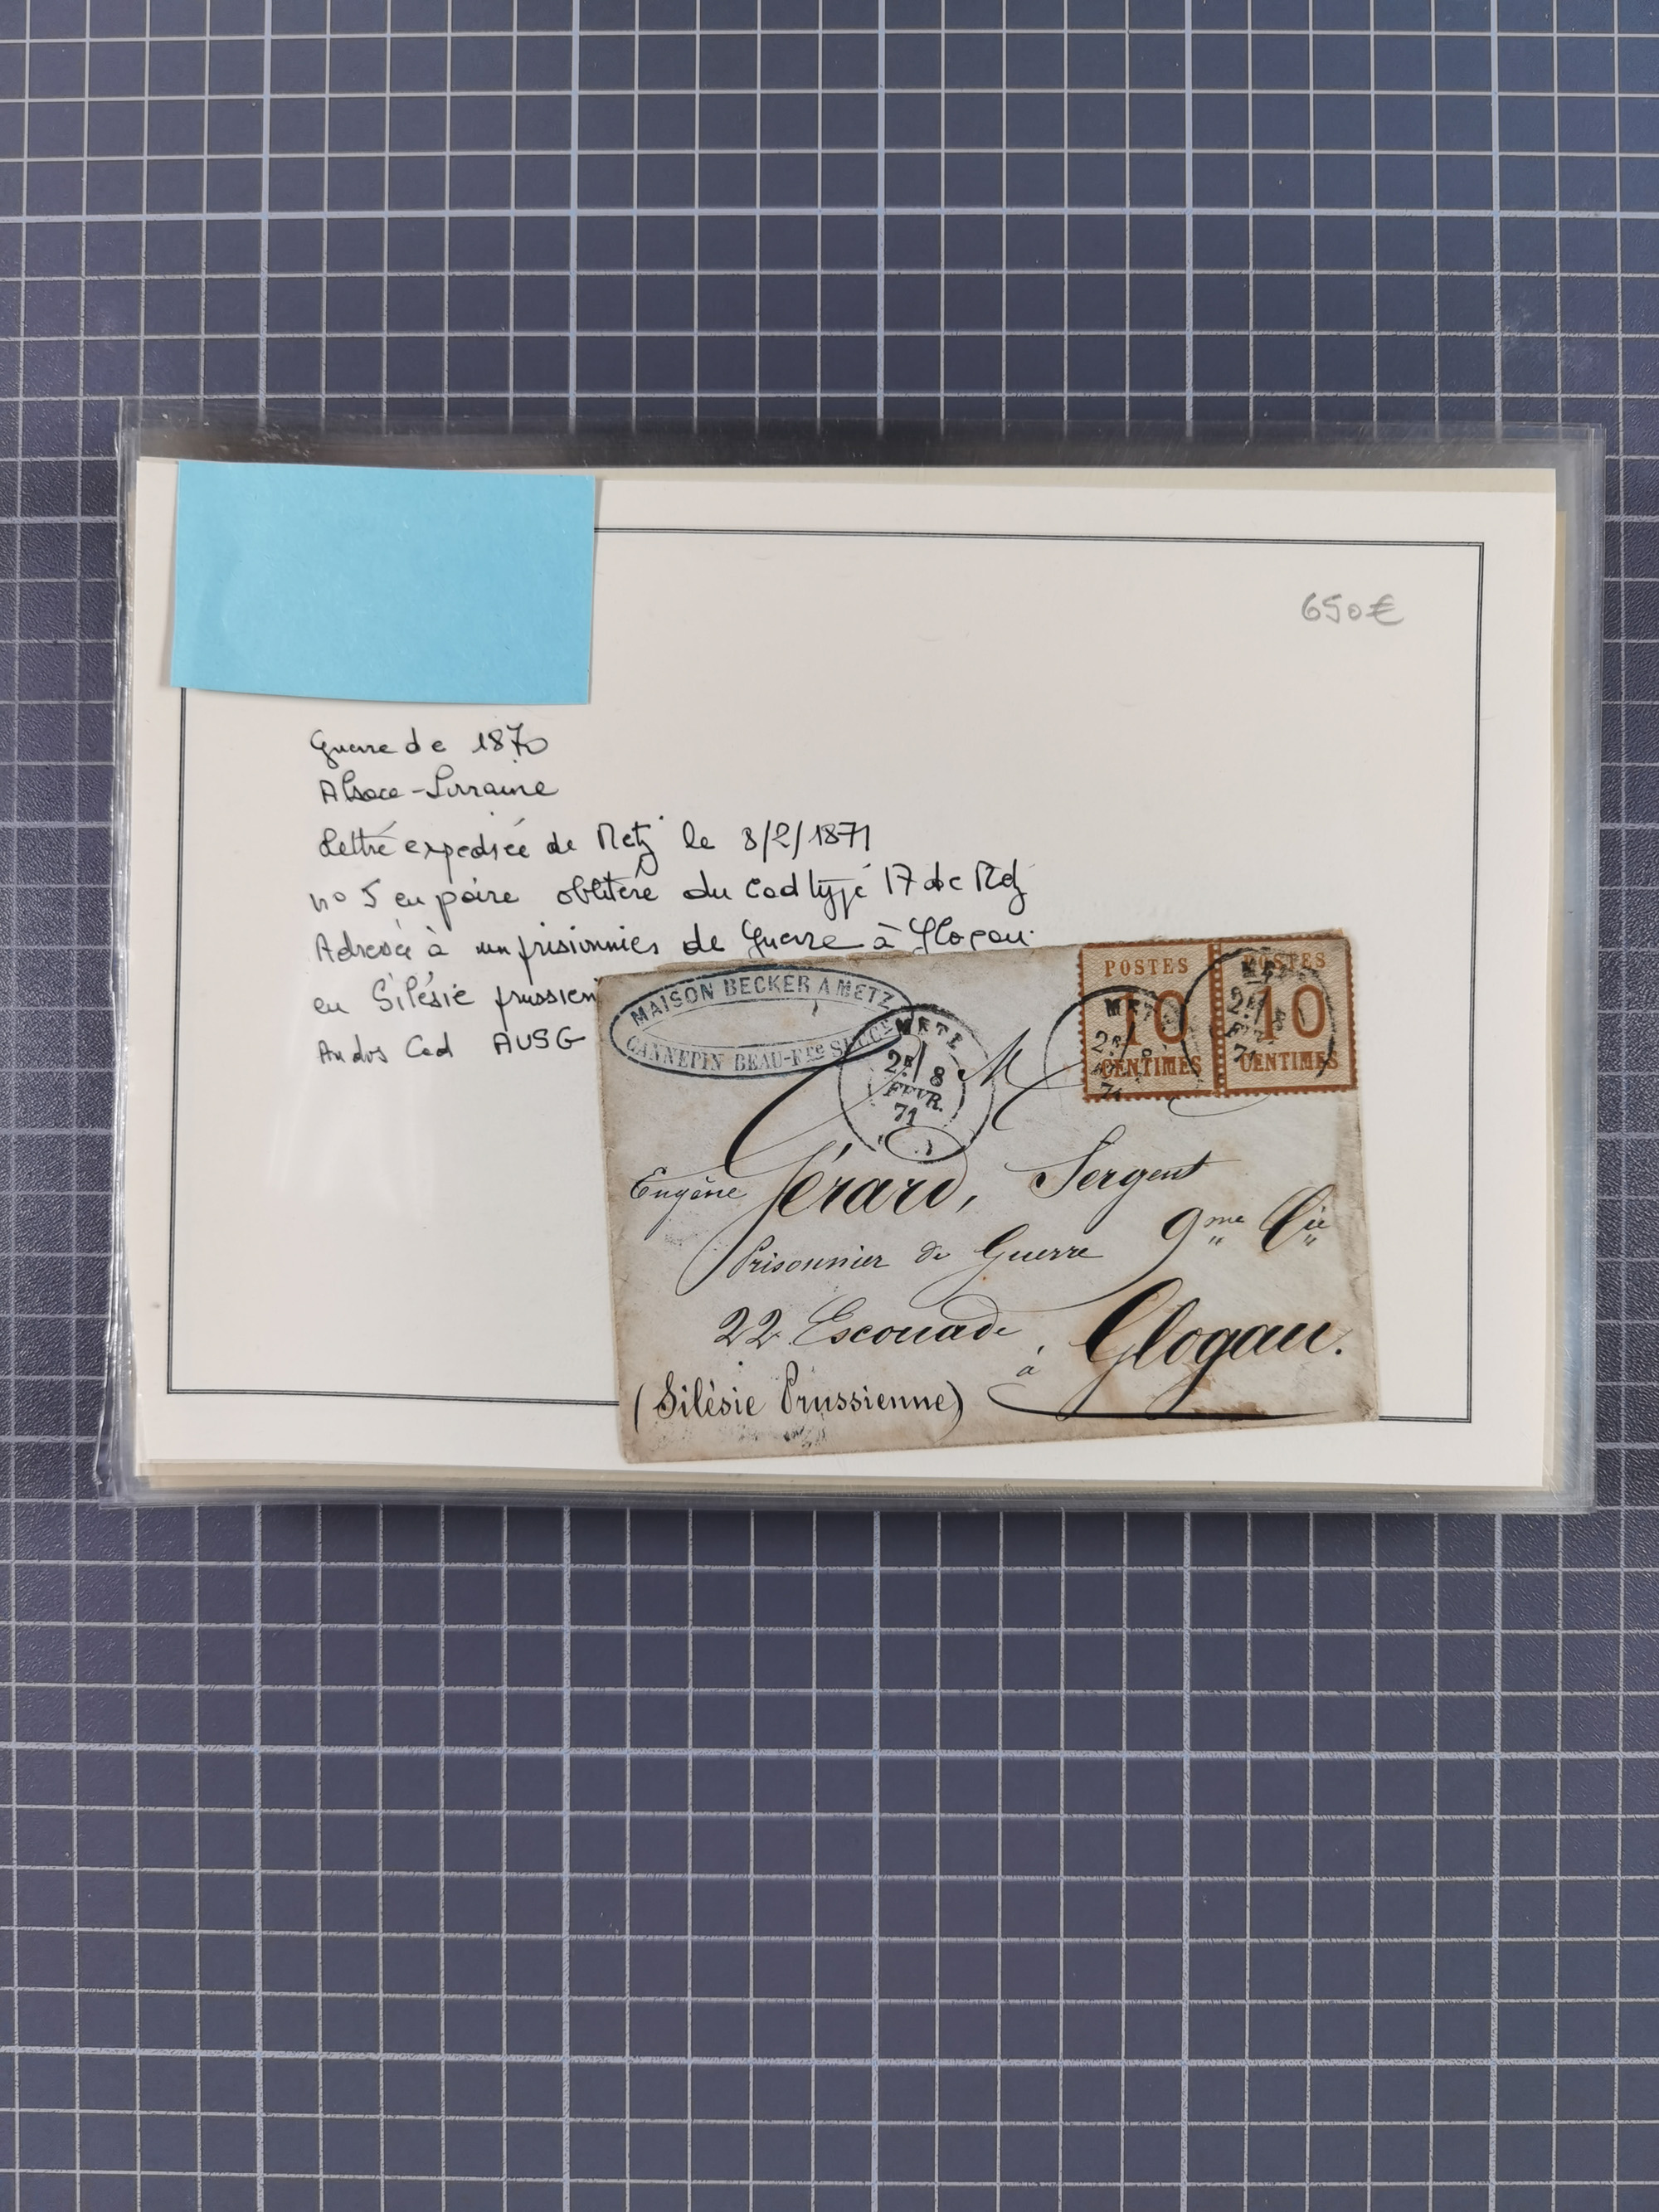 650€
Guerre de 1870
Alsace-Lorraine
Lettre expediée de Metz le 8/2/1871
n° 5 en paire oblitéré du Cad type 17 de Metz
Adressée à un prisionnier de Guerre à Glogau
en Silésie prussien
Au dos Cad AUSG
MAISON BECKER A METZ
CANNEPIN BEAU-Fre SUCCR
METZ
2E 8
FEVR.
71
POSTES
10
CENTIMES
POSTES
10
CENTIMES
METZ
2E 8
71
METZ
2E 8
71
M
Eugène Gérard, Sergent
Prisonnier de Guerre 9me Cie
22 Escouade à Glogau.
(Silésie Prussienne)